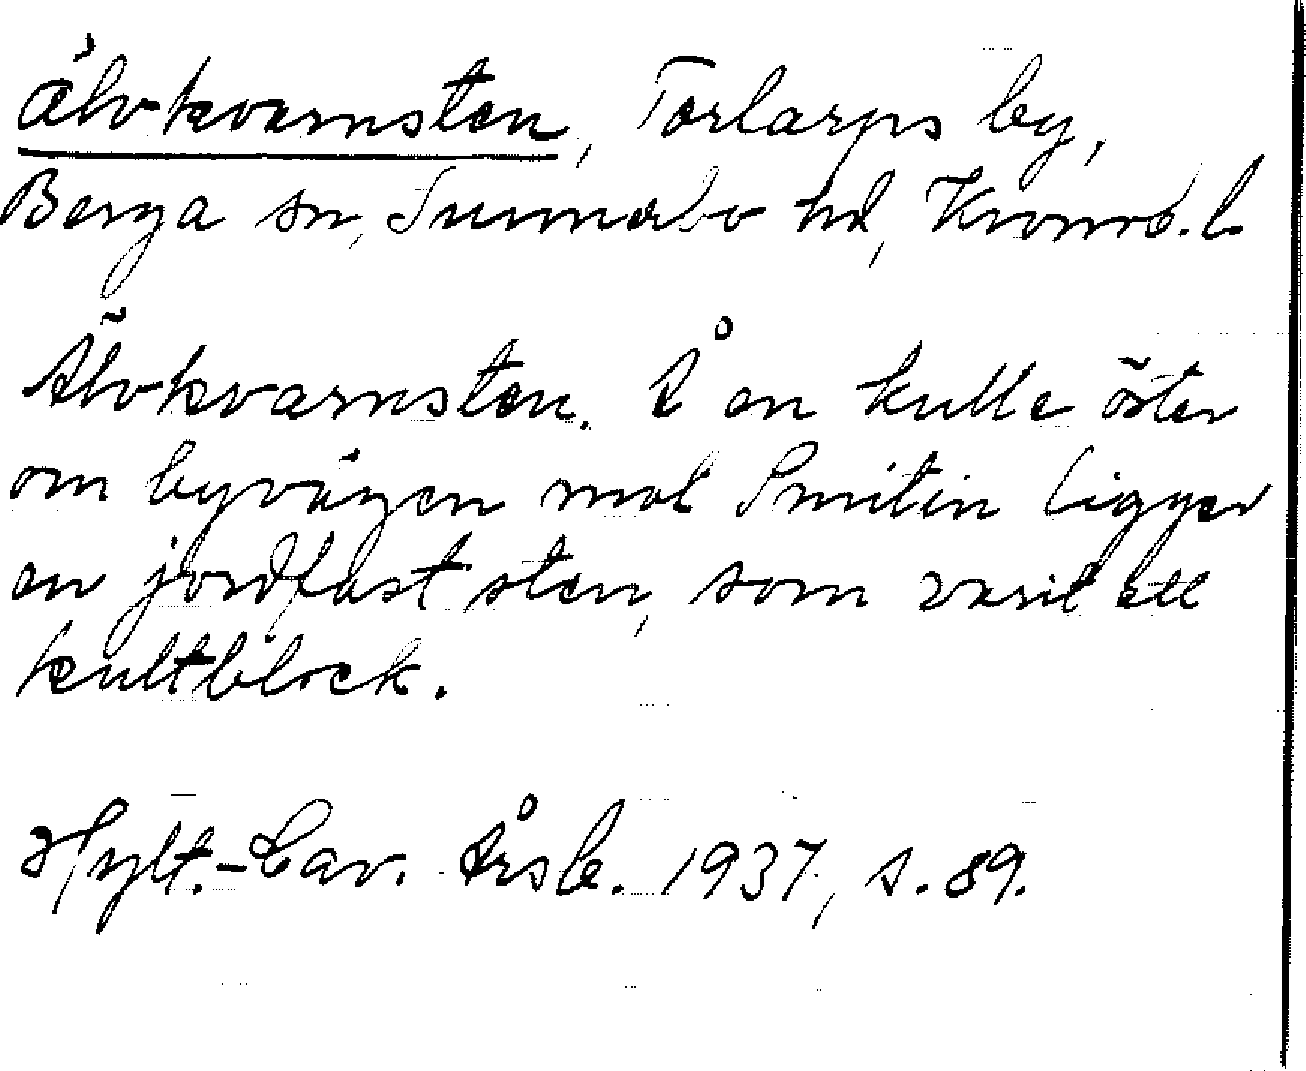 Älvkvarnsten, Torlarps by,
Berga sn, Sunnerbo hd, Kronob. l.
Älvkvarnsten. Å en kulle öster
om byvägen mot Smitin ligger
en jordfast sten, som varit ett
kultblock.
Hylt.-Cav. Årsb. 1937, s. 89.